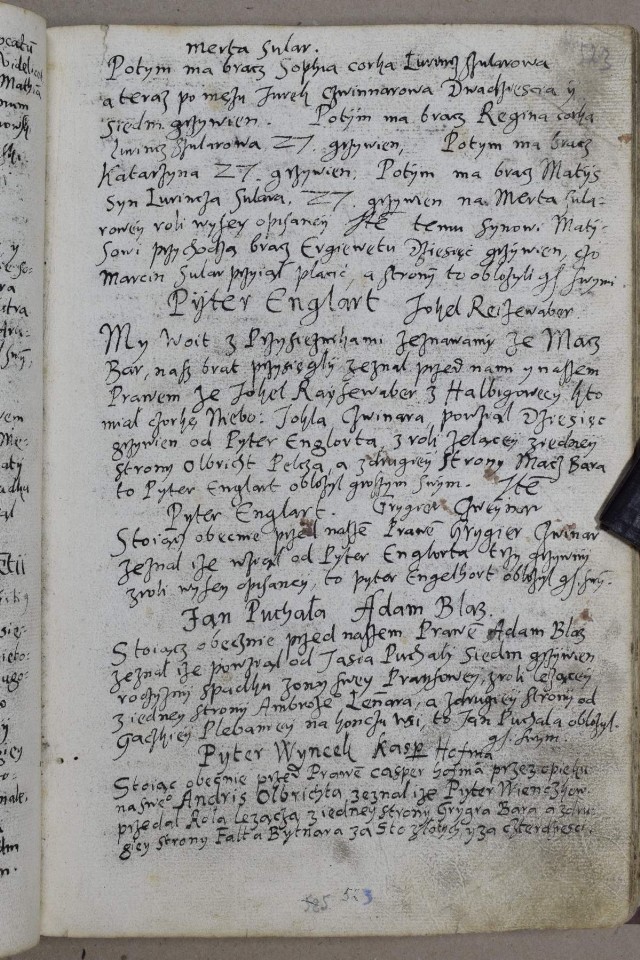 merta sular.
Potym ma bracz Sophia corka Lurincz szularowa
a teraz po mężu Jurek Czwinnarowa Dwadziescia y
siedm grzywien. Potym ma bracz Regina corka
Lurincz Szularowa 27. grzywien, Potym ma bracz
Katarzyna 27. grzywien, Potym ma bracz Matys
syn Lurincza Sulara, 27. grzywien na Merta Sula-
rowey roli wyssey opisaney Ite temu Synowi Maty-
sowi przychodzą bracz Ergiewetu Dziesięć grzywien, czo
Marcin Sular przyiął placić, a strony to obłożyli gs. swymi.
Pyter Englart Johel Reisewaber
My Woit z Przysieznikami zeznawamy ze Macz
Bar, nasz brat przysięgly zeznal przed nami y naszem
Prawem ze Johel Rayszewaber z Halbigowecy, kto
miał czorkę Niebo: Johla, Czwinara, powziął Dziesięc
grzywien od Pyter Englorta, z roli zelącey ziedney
strony Olbricht Pelcza, a z drugiey strony Macz Bara
to Pyter Englart obłozył groszym swym. Ite
Pyter Englart. Grygier Czweynar
Stoiącz obecnie przed naszē Prawē Grygier Czwinar
zeznal ize wziął od Pyter Englorta trzy grzywny
z roli wyssey opisaney, to pyter Engelhort obłozył gs. swy.
Jan Puchala Adam Blaz.
Stoiącz obecznie przed naszem Prawē Adam Blaz
zeznal ize powziął od Jasia Puchali Siedm grzywien
rodzyzny spadku zony swey Pranzowey, z roli lezącey
z iedney strony Ambroze Lenara, a z drugiey strony od
Gaczkiey Plebaniey na koncu wsi, to Jan Puchala obłozyl.
gs. swym.
Pyter Wyncek Kasper Hofma
Stoiąc obecnie przed Prawē casper hofma przez opieku
na swe° Andris Olbrichta zeznal ize Pyter Wienczkow
przedal Rola lezącą z iedney strony Grygra Bara a z dru-
giey strony Falta Bytnara za Sto złotych y za czterdziesci.
585 513